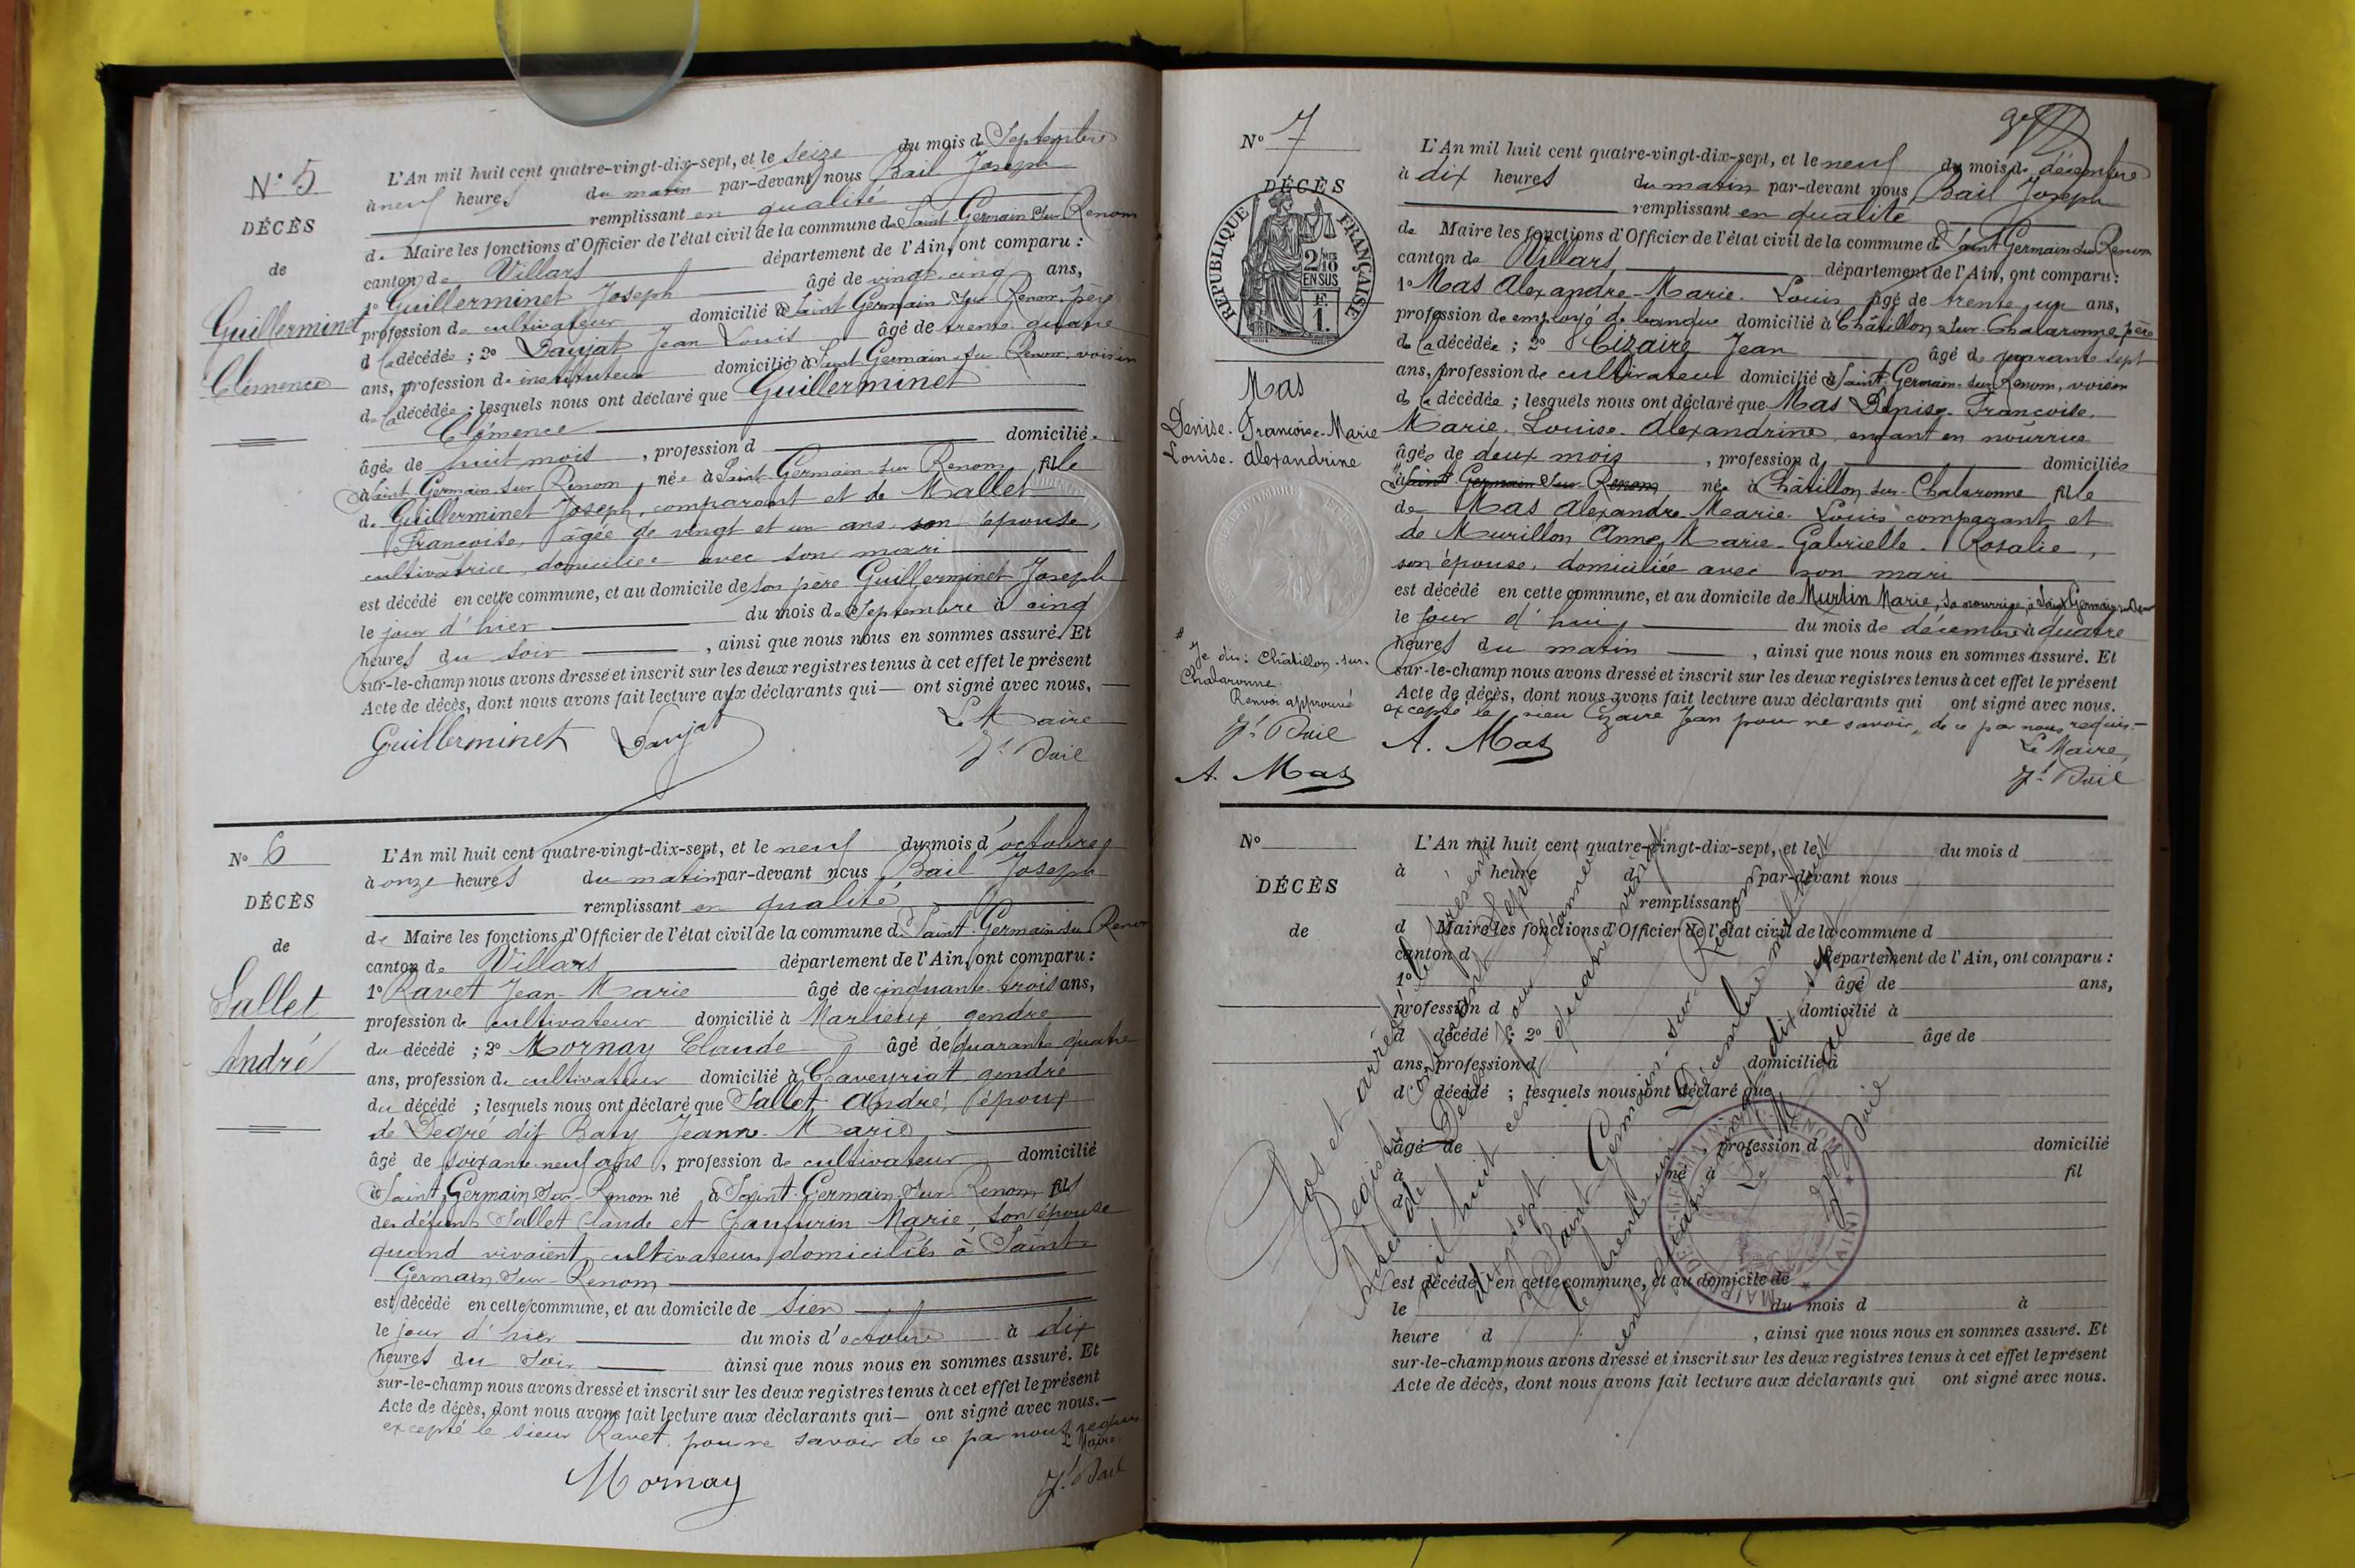 N° 5
DÉCÈS
de
Guilleminet
Clémence
L'An mil huit cent quatre-vingt-dix-sept, et le seize du mois de Septembre
à neuf heures du matin par-devant nous Bail Joseph
remplissant en qualité
de Maire les fonctions d'Officier de l'état civil de la commune de Saint-Germain-sur-Renom
canton de Villars département de l'Ain, ont comparu :
1° Guillerminet Joseph âgé de vingt-cinq ans,
profession de cultivateur domicilié à Saint-Germain-sur-Renom, père
de la décédée ; 2° Janjat Jean Louis âgé de trente quatre
ans, profession de instituteur domicilié à Saint-Germain-sur-Renom, voisin
de la décédée ; lesquels nous ont déclaré que Guillerminet
Clémence
âgée de huit mois, profession d domiciliée
à Saint-Germain-sur-Renom, née à Saint-Germain-sur-Renom, fille
de Guillerminet Joseph, comparant et de Mallet
Françoise, âgée de vingt et un ans, son épouse,
cultivatrice, domiciliée avec son mari
est décédé en cette commune, et au domicile de son père Guillerminet Joseph
le jour d'hier du mois de Septembre à cinq
heures du soir, ainsi que nous nous en sommes assuré. Et
sur-le-champ nous avons dressé et inscrit sur les deux registres tenus à cet effet le présent
Acte de décès, dont nous avons fait lecture aux déclarants qui — ont signé avec nous. —
Guillerminet Janjat Le Maire
Jh Bail
N° 6
DÉCÈS
de
Sallet
André
L'An mil huit cent quatre-vingt-dix-sept, et le neuf du mois d'octobre
à onze heures du matin par-devant nous Bail Joseph
remplissant en qualité
de Maire les fonctions d'Officier de l'état civil de la commune de Saint-Germain-sur-Renom
canton de Villars département de l'Ain, ont comparu :
1° Ravet Jean-Marie âgé de cinquante-trois ans,
profession de cultivateur domicilié à Marlieux gendre
du décédé ; 2° Mornay Claude âgé de quarante-quatre
ans, profession de cultivateur domicilié à Chaveyriat gendre
du décédé ; lesquels nous ont déclaré que Sallet André, époux
de Degré dit Baty Jeanne-Marie
âgé de soixante-neuf ans, profession de cultivateur domicilié
à Saint-Germain-sur-Renom né à Saint-Germain-sur-Renom fils
des défunts Sallet Claude et Marie, son épouse
quand vivaient cultivateurs domiciliés à Saint-
Germain-sur-Renom
est décédé en cette commune, et au domicile de sien
le jour d'hier du mois d'octobre à dix
heures du soir ainsi que nous nous en sommes assuré. Et
sur-le-champ nous avons dressé et inscrit sur les deux registres tenus à cet effet le présent
Acte de décès, dont nous avons fait lecture aux déclarants qui — ont signé avec nous. —
excepté le sieur Ravet pour ne savoir de ce par nous requis
Le Maire
Mornay Jh Bail
N° 7
DÉCÈS
RÉPUBLIQUE FRANÇAISE
2/10 MES EN SUS
F. 1.
Mas
Denise-Françoise-Marie
Louise-Alexandrine
# Je dis : Châtillon-sur-
Chalaronne.
Renvoi approuvé
Jh Bail
A. Mas
L'An mil huit cent quatre-vingt-dix-sept, et le neuf du mois de décembre
à dix heures du matin par-devant nous Bail Joseph
remplissant en qualité
de Maire les fonctions d'Officier de l'état civil de la commune de Saint-Germain-sur-Renom
canton de Villars département de l'Ain, ont comparu :
1° Mas Alexandre-Marie-Louis âgé de trente un ans,
profession de employé de banque domicilié à Châtillon-sur-Chalaronne, père
de la décédée ; 2° Cizaire Jean âgé de quarante-sept
ans, profession de cultivateur domicilié à Saint-Germain-sur-Renom, voisin
de la décédée ; lesquels nous ont déclaré que Mas Denise-Françoise-
Marie-Louise-Alexandrine, enfant en nourrice
âgée de deux mois, profession d domiciliée
# à Saint-Germain-sur-Renom née à Châtillon-sur-Chalaronne fille
de Mas Alexandre-Marie-Louis comparant et
de Murillon Anne-Marie-Gabrielle-Rosalie,
son épouse, domiciliée avec son mari
est décédé en cette commune, et au domicile de Murtin Marie, sa nourrice, à Saint-Germain-sur-Renom
le jour d'hui du mois de décembre à quatre
heures du matin, ainsi que nous nous en sommes assuré. Et
sur-le-champ nous avons dressé et inscrit sur les deux registres tenus à cet effet le présent
Acte de décès, dont nous avons fait lecture aux déclarants qui ont signé avec nous.
excepté le sieur Cizaire Jean pour ne savoir, de ce par nous requis. —
A. Mas Le Maire,
Jh Bail
N°
DÉCÈS
de
L'An mil huit cent quatre-vingt-dix-sept, et le du mois d
à heure d par-devant nous
remplissant
d Maire les fonctions d'Officier de l'état civil de la commune d
canton d département de l'Ain, ont comparu :
1° âgé de ans,
profession d domicilié à
d décédé ; 2° âge de
ans, profession d domicilié à
d décédé ; lesquels nous ont déclaré que
âgé de, profession d domicilié
à né à fil
d
est décédé en cette commune, et au domicile de
le du mois d à
heure d, ainsi que nous nous en sommes assuré. Et
sur-le-champ nous avons dressé et inscrit sur les deux registres tenus à cet effet le présent
Acte de décès, dont nous avons fait lecture aux déclarants qui ont signé avec nous.
Clos et arrêté le présent
Registre contenant sept
actes de Décès pour l'année
mil huit cent quatre-vingt
dix sept.
Saint-Germain-sur-Renom
le trente un Décembre mil huit
cent quatre vingt dix sept
Le Maire
Jh Bail